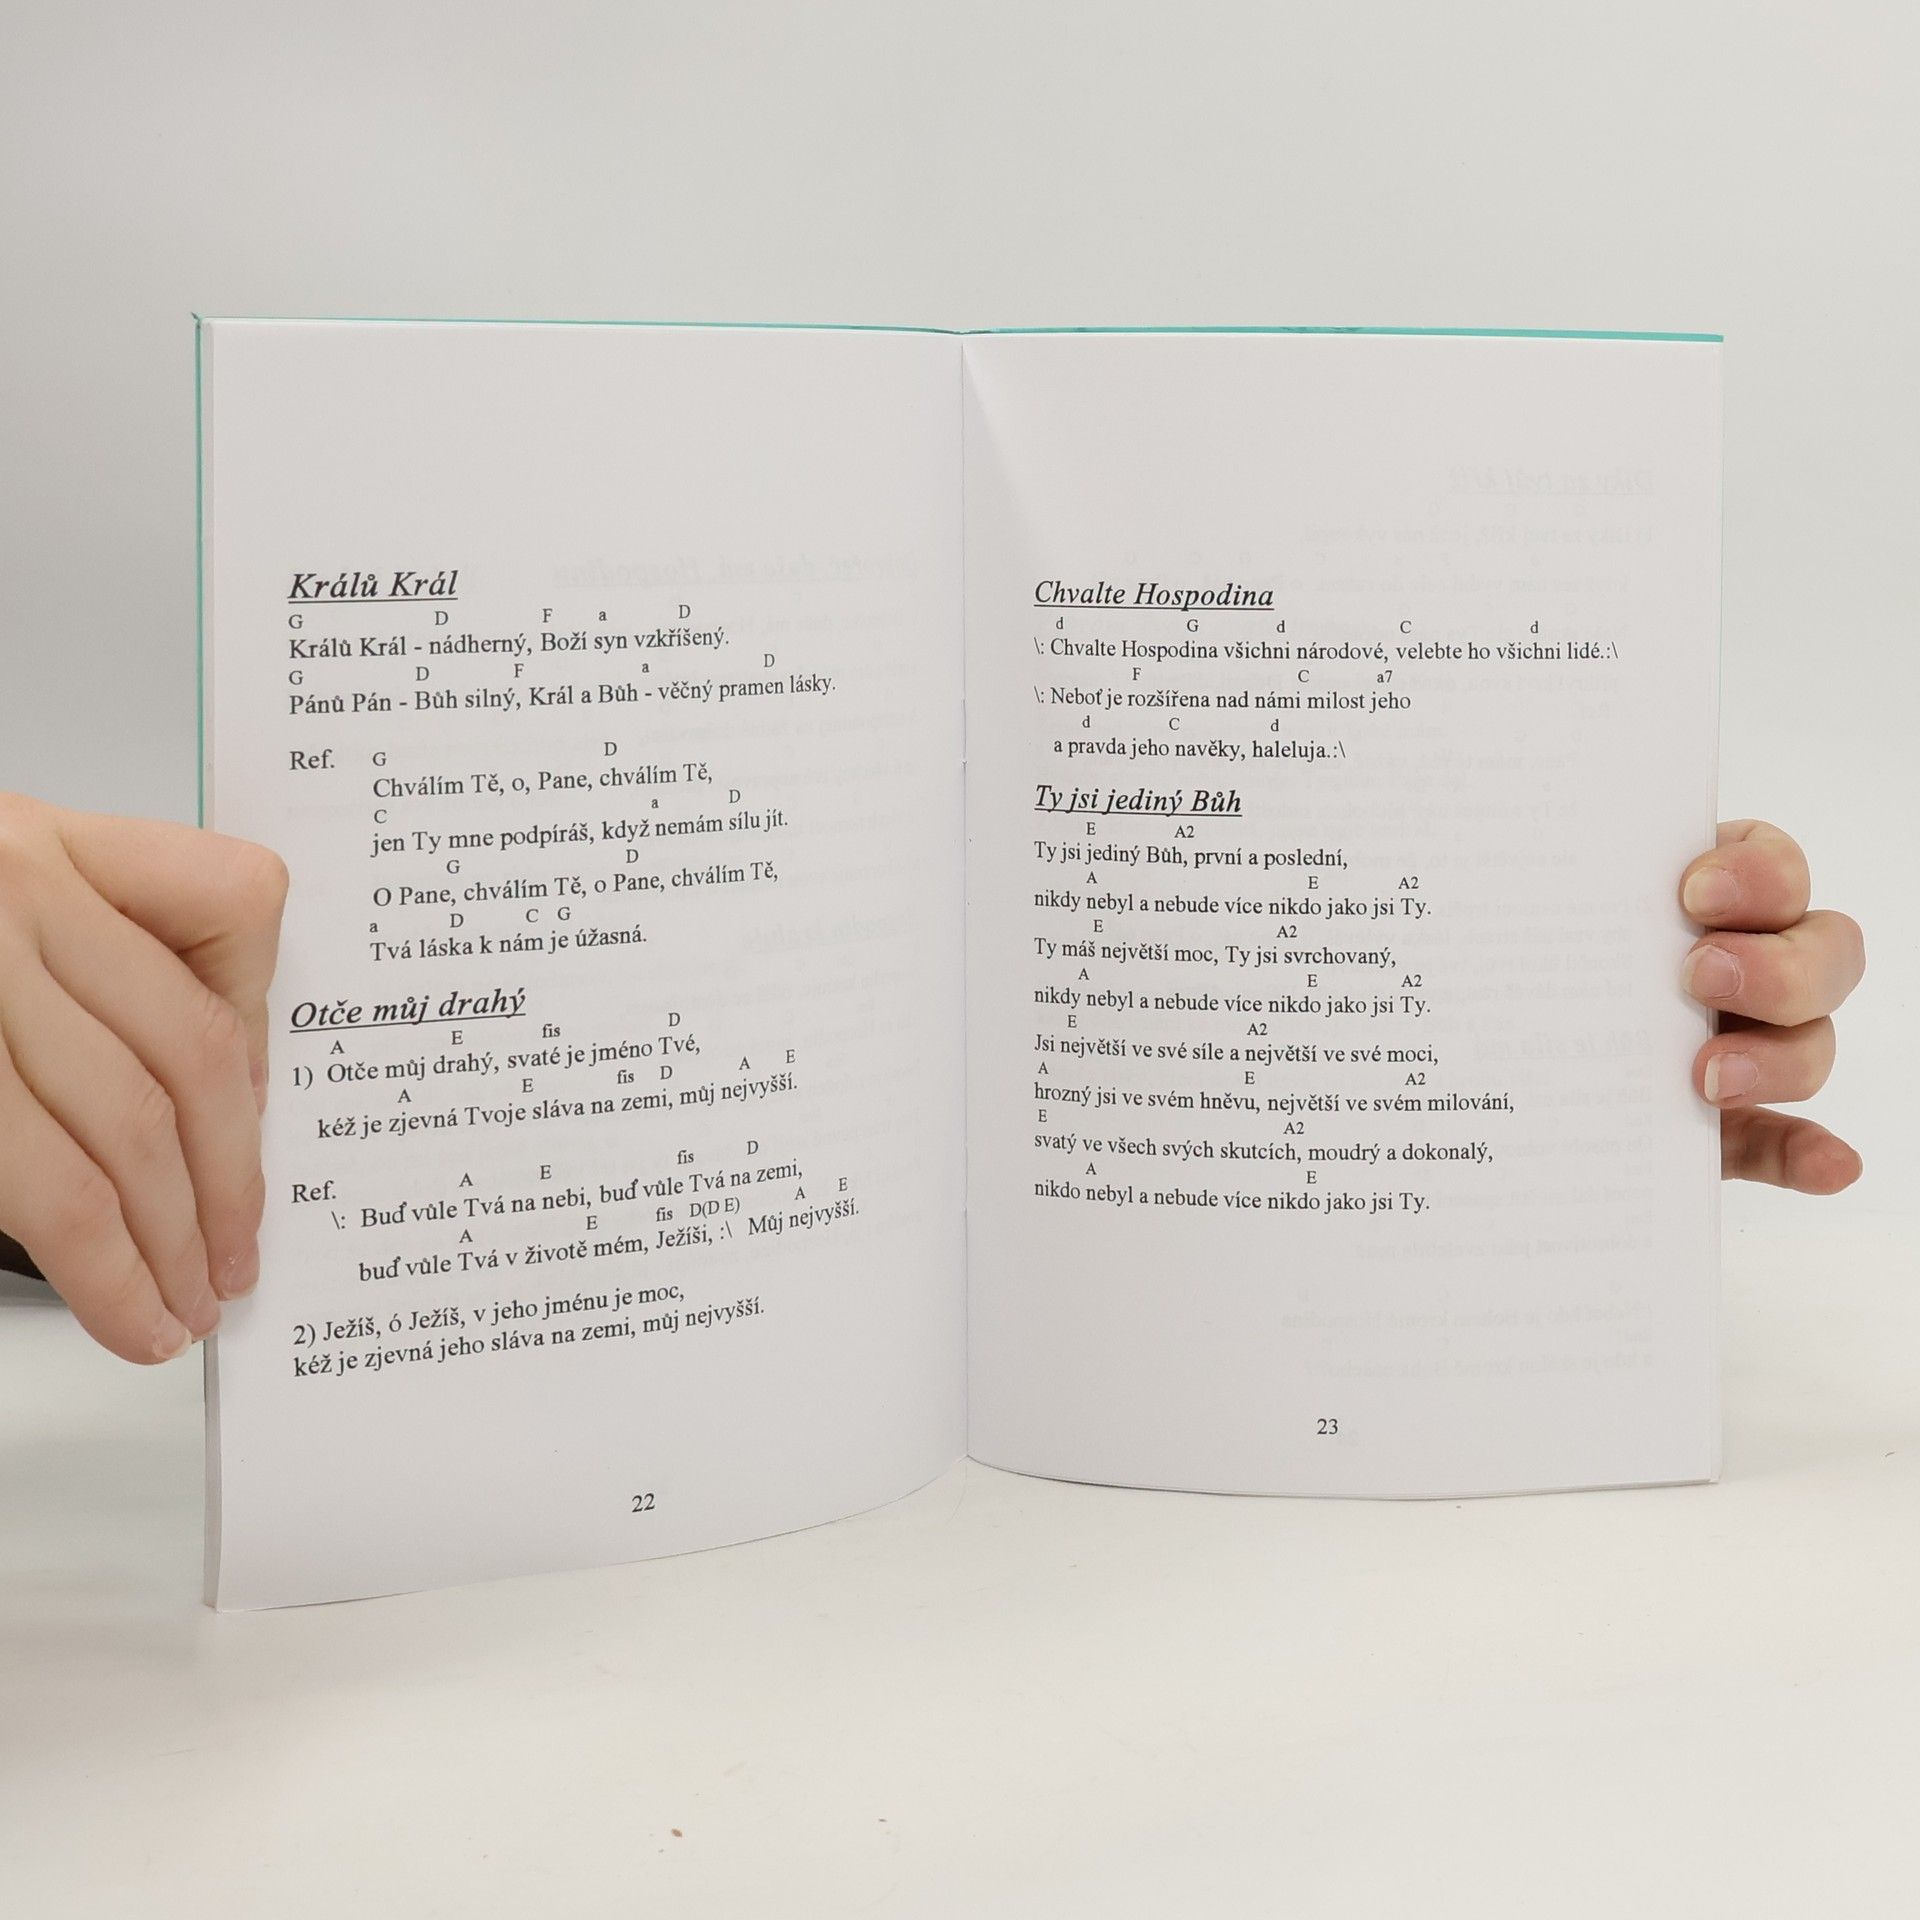 Králů Král
G D F a D
Králů Král - nádherný, Boží syn vzkříšený.
G D F a D
Pánů Pán - Bůh silný, Král a Bůh - věčný pramen lásky.
Ref. G D
Chválím Tě, o, Pane, chválím Tě,
C a D
jen Ty mne podpíráš, když nemám sílu jít.
G D
O Pane, chválím Tě, o Pane, chválím Tě,
a D C G
Tvá láska k nám je úžasná.
Otče můj drahý
A E fis D
1) Otče můj drahý, svaté je jméno Tvé,
A E fis D A E
kéž je zjevná Tvoje sláva na zemi, můj nejvyšší.
Ref. A E fis D
\: Buď vůle Tvá na nebi, buď vůle Tvá na zemi,
A E fis D(D E) A E
buď vůle Tvá v životě mém, Ježíši, :\ Můj nejvyšší.
2) Ježíš, ó Ježíš, v jeho jménu je moc,
kéž je zjevná jeho sláva na zemi, můj nejvyšší.
22
Chvalte Hospodina
d G d C d
\: Chvalte Hospodina všichni národové, velebte ho všichni lidé.:\
F C a7
\: Neboť je rozšířena nad námi milost jeho
d C d
a pravda jeho navěky, haleluja.:\
Ty jsi jediný Bůh
E A2
Ty jsi jediný Bůh, první a poslední,
A E A2
nikdy nebyl a nebude více nikdo jako jsi Ty.
E A2
Ty máš největší moc, Ty jsi svrchovaný,
A E A2
nikdy nebyl a nebude více nikdo jako jsi Ty.
E A2
Jsi největší ve své síle a největší ve své moci,
A E A2
hrozný jsi ve svém hněvu, největší ve svém milování,
E A2
svatý ve všech svých skutcích, moudrý a dokonalý,
A E
nikdo nebyl a nebude více nikdo jako jsi Ty.
23